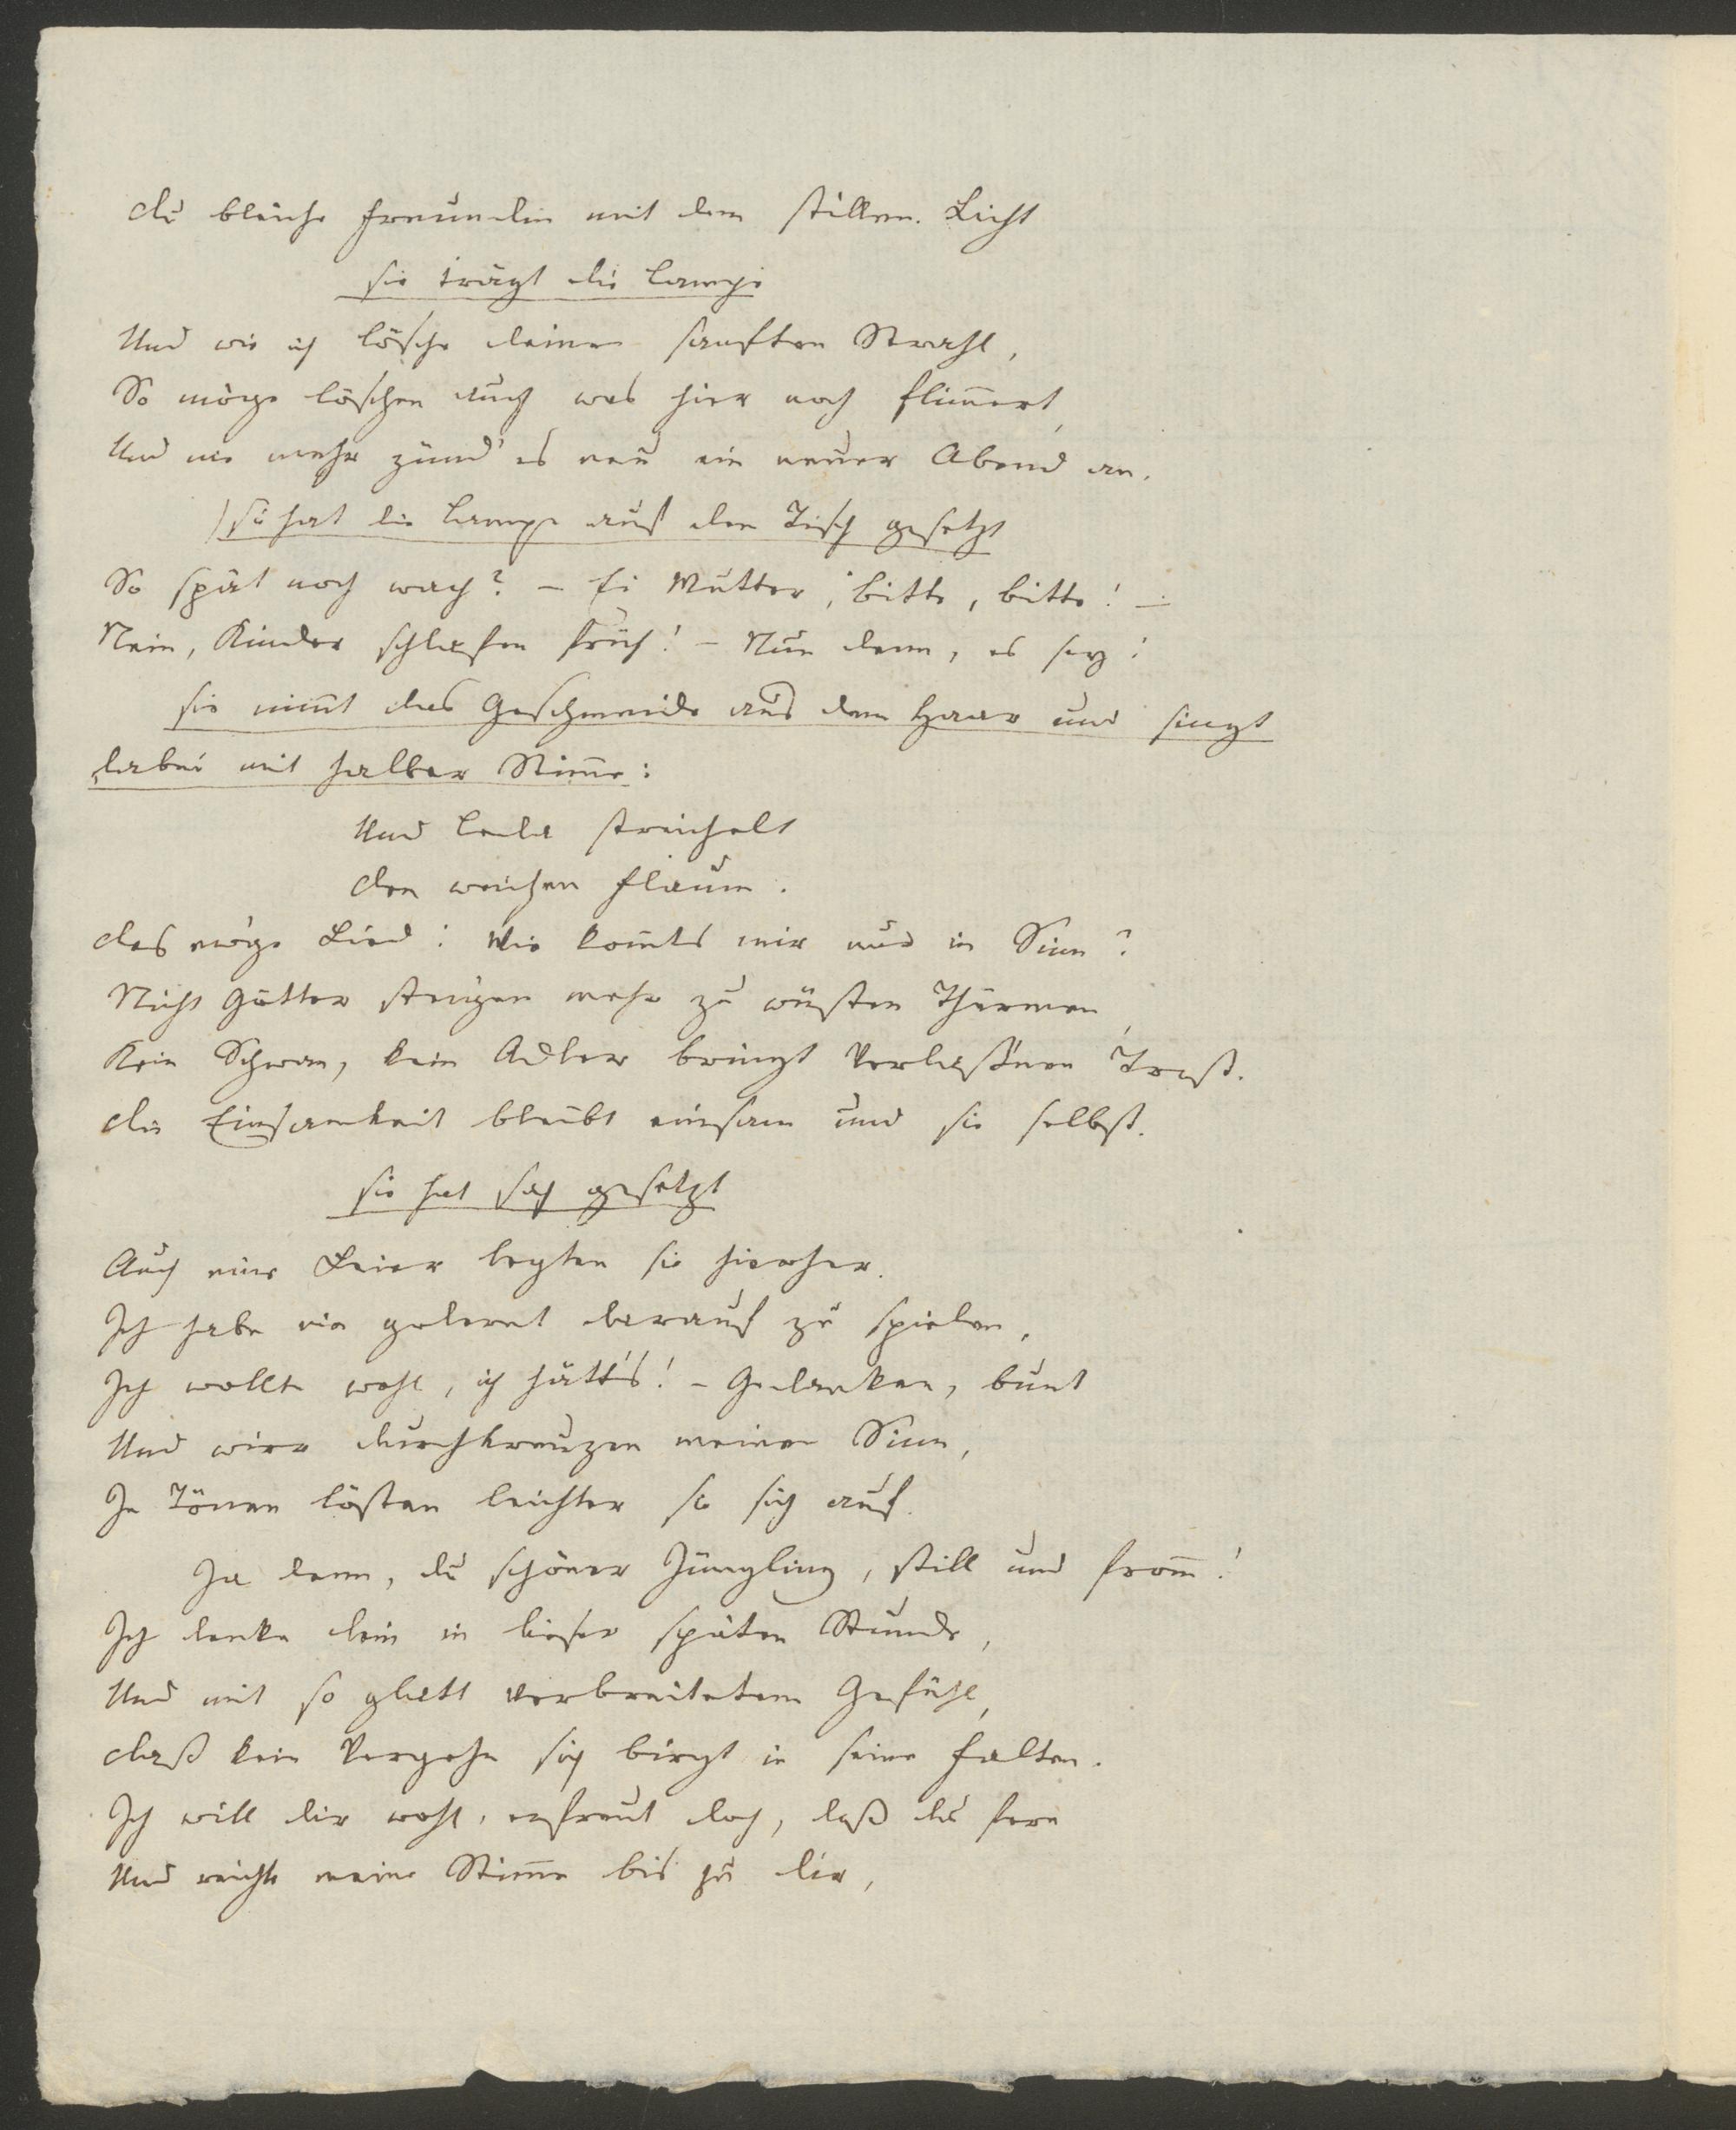 Du bleiche Freundin mit dem stillen Licht
sie trägt die Lampe
Und wie ich lösche deinen sanften Strahl,
So möge löschen auch was hier noch flim̄ert,
Und nie mehr zünd' es neu ein neuer Abend an.
sie hat die Lampe auf den Tisch gesetzt
So spät noch wach? – Ei Mutter, bitte, bitte! –
Nein, Kinder schlafen früh! – Nun denn, es sey!
sie nim̄t das Geschmeide aus dem Haar und singt
dabei mit halber Stim̄e:
Und Leda streichelt
Den weichen Flaum.
Das ew'ge Lied! Wie kom̄ts mir nur in Sinn?
Nicht Götter steigen mehr zu wüsten Thürmen,
Kein Schwan, kein Adler bringt Verlaß'nen Trost.
Die Einsamkeit bleibt einsam und sie selbst.
sie hat sich gesetzt
Auch eine Leier legten sie hierher.
Ich habe nie gelernt darauf zu spielen,
Ich wollte wohl, ich hätt's! – Gedanken, bunt
Und wirr durchkreuzen meinen Sinn,
In Tönen lösten leichter sie sich auf.
Ja denn, du schöner Jüngling, still und from̄!
Ich denke dein in dieser späten Stunde,
Und mit so glatt verbreitetem Gefühl,
Daß kein Vergehn sich birgt in seine Falten.
Ich will dir wohl, erfreut doch, daß du fern
Und reichte meine Stim̄e bis zu dir,